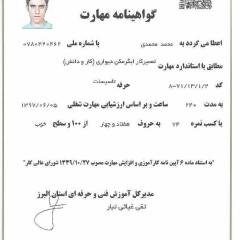 گواهینامه مهارت
اعطا می گردد به محمد محمدی با شماره ملی ۰۷۸۰۴۲۰۴۶۲
مطابق با استاندارد مهارت تعمیرکار آبگرمکن دیواری (کار و دانش)
کد ۸-۷۱/۱۳/۱/۲ حرفه تاسیسات
به مدت ۲۲۰ ساعت و بر اساس ارزشیابی مهارت شغلی ۱۳۹۷/۰۶/۰۵
با کسب نمره ۷۴ به حروف هفتاد و چهار از ۱۰۰ و سطح خوب
"به استناد ماده ۶ آیین نامه کارآموزی و افزایش مهارت مصوب ۱۳۴۹/۱۰/۲۷ شورای عالی کار"
مدیرکل آموزش فنی و حرفه ای استان البرز
تقی غیاثی تبار